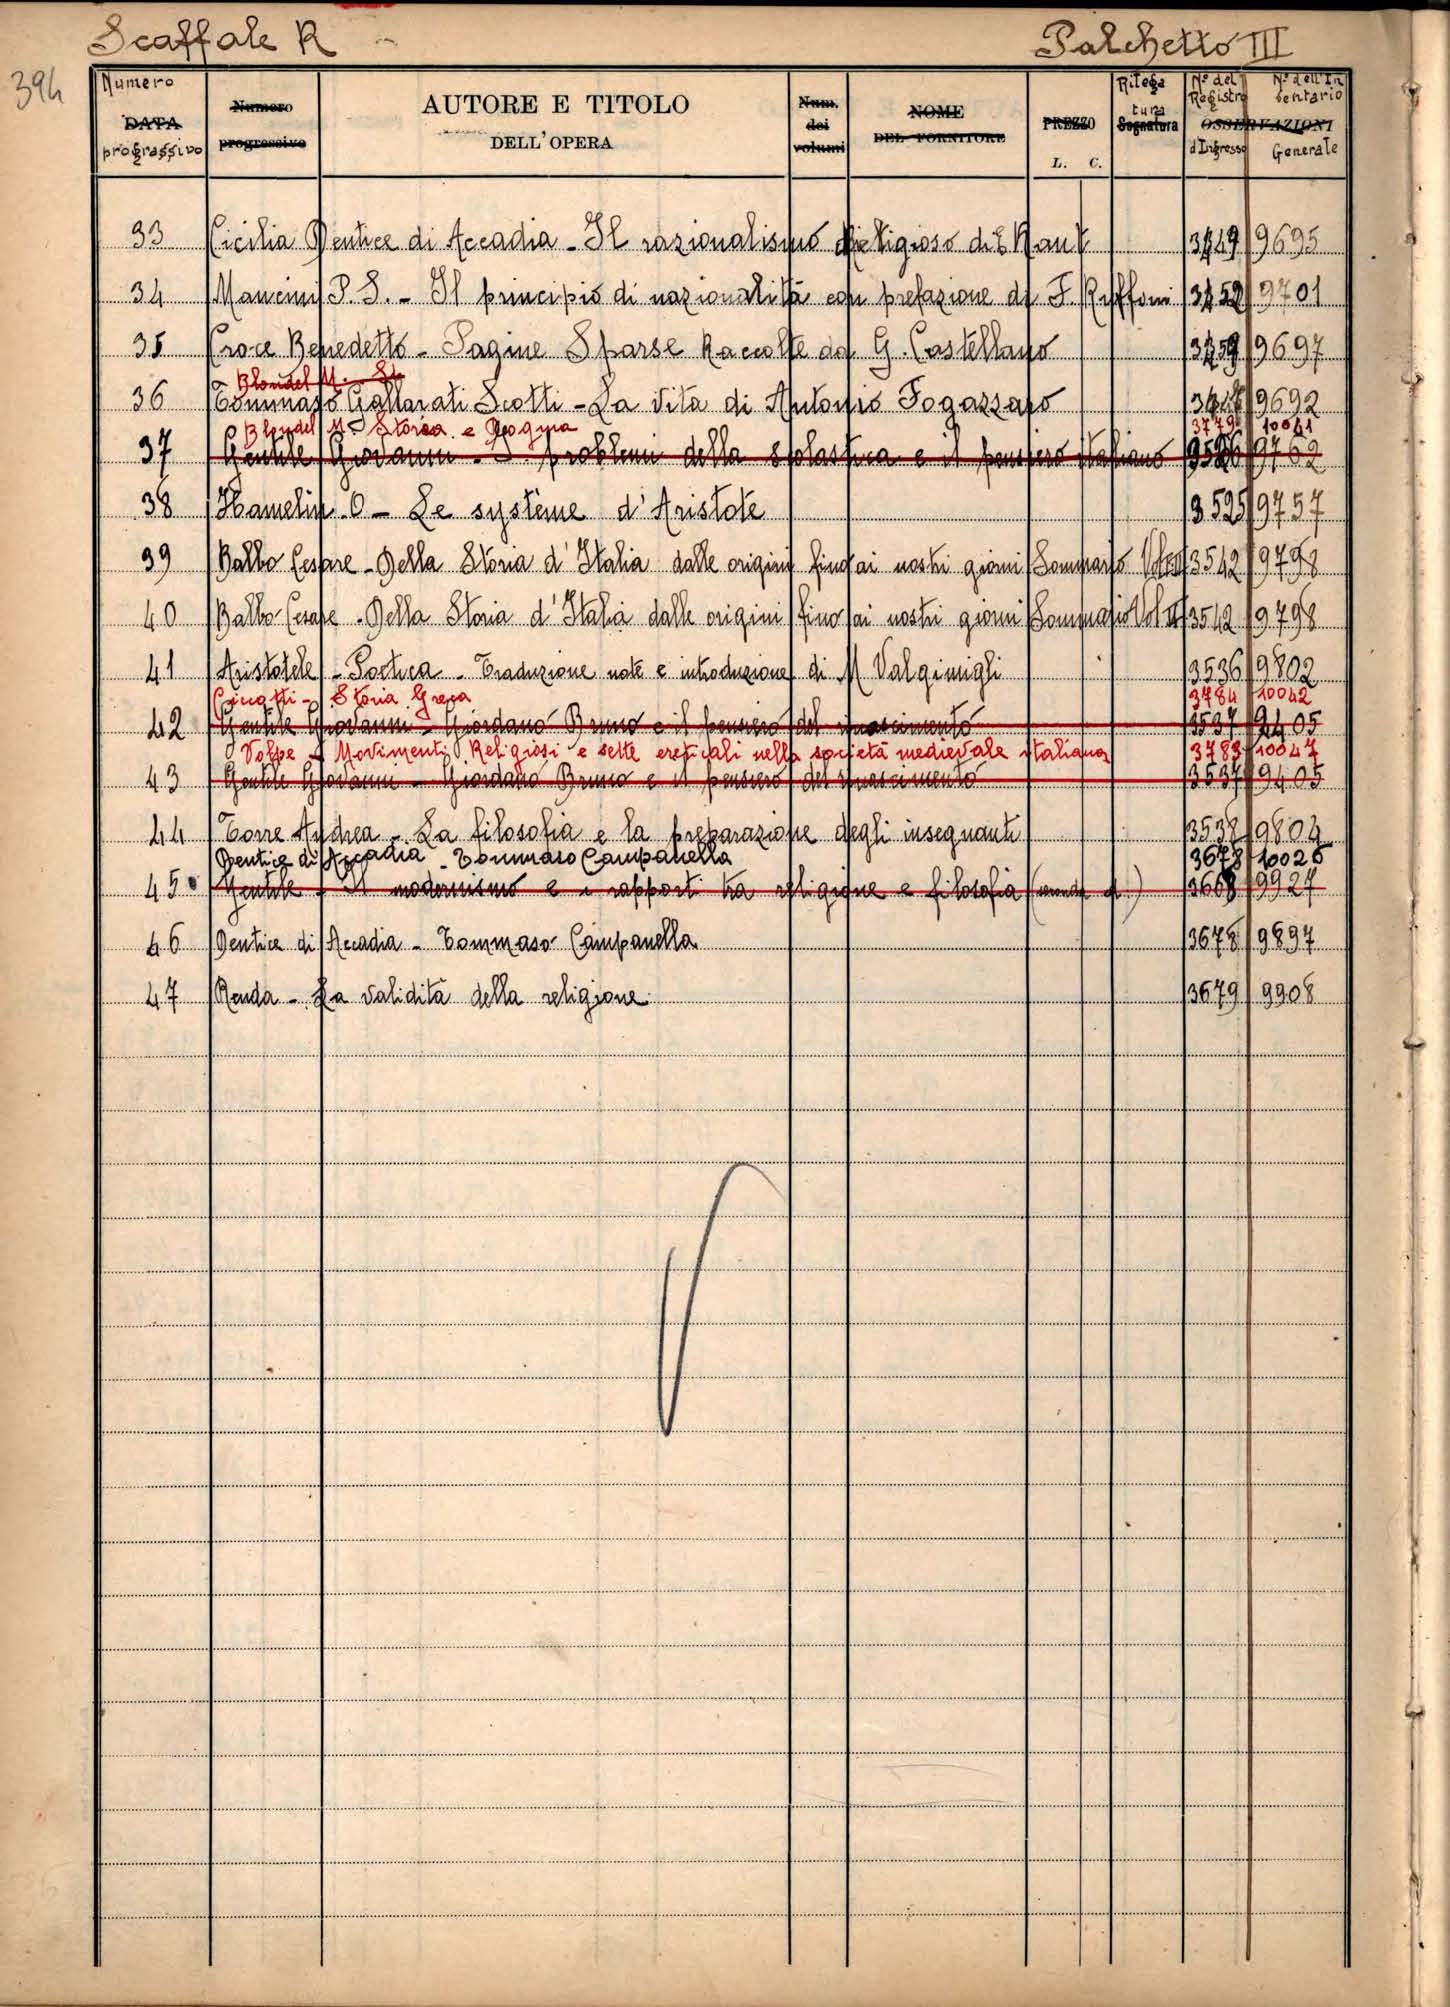 Scaffale R Palchetto III
394
Numero DATA progressivo Numero progressivo AUTORE E TITOLO DELL'OPERA Num. dei volumi NOME DEL FORNITORE PREZZO L. C. Rilegatura Segnatura N.º del Registro d'Ingresso OSSERVAZIONI N.º dell'Inventario Generale
33 Cicilia Dentice di Accadia - Il razionalismo religioso di E Kant 9695
34 Mancini P. S. - Il principio di nazionalità con prefazione di F. Ruffoni 9701
35 Croce Benedetto - Pagine Sparse Raccolte da G. Castellano 9697
Blondel M. St
36 Tommaso Gallarati Scotti - La vita di Antonio Fogazzaro 9692
Blondel M. Storia e Dogma 3779 10041
37 Gentile Giovanni - I problemi della scolastica e il pensiero italiano 9762
38 Hamelin O - Le système d'Aristote 3525 9757
39 Balbo Cesare - Della Storia d'Italia dalle origini fino ai nostri giorni Sommario 3542 9798
40 Balbo Cesare - Della Storia d'Italia dalle origini fino ai nostri giorni Sommario Vol II 3542 9798
41 Aristotele - Poetica - Traduzione note e introduzione di M Valgimigli 3536 9802
Ciccotti - Storia Greca 3784 10042
42 Gentile Giovanni - Giordano Bruno e il pensiero del rinascimento 3537 9405
Volpe - Movimenti Religiosi e sette ereticali nella società medievale italiana 3783 10047
43 Gentile Giovanni - Giordano Bruno e il pensiero del rinascimento 3537 9405
44 Torre Andrea - La filosofia e la preparazione degli insegnanti 3538 9804
Dentice di Accadia - Tommaso Campanella 3678 10026
45 Gentile - Il modernismo e i rapporti tra religione e filosofia (seconda ed.) 3668 9927
46 Dentice di Accadia - Tommaso Campanella 3678 9897
47 Renda - La validità della religione 3679 9908